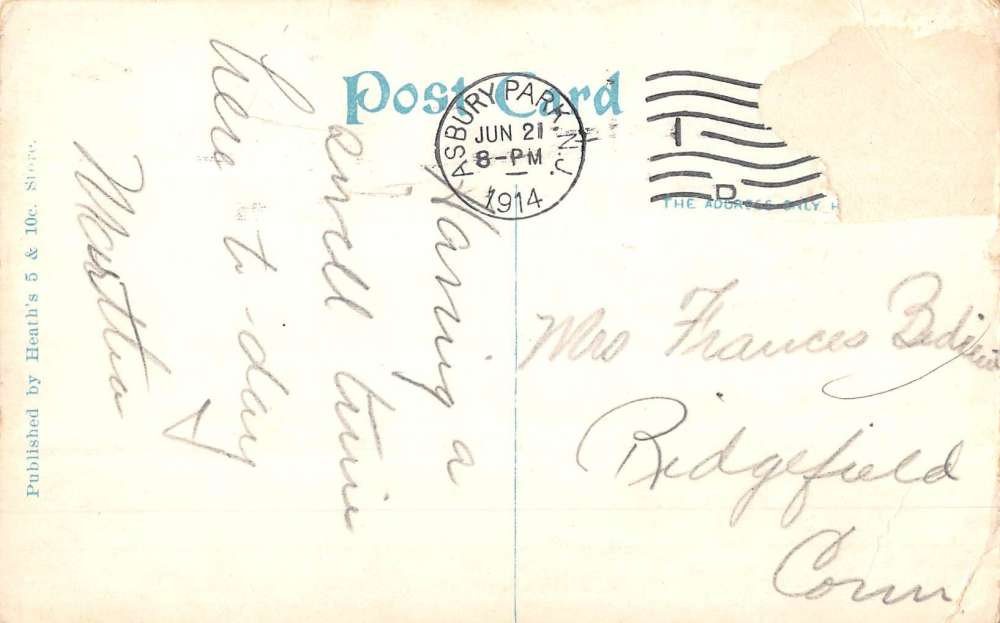 Post Card
ASBURY PARK, N.J.
JUN 21
8-PM
1914
1
D
THE ADDRESS ONLY H
Having a
swell time
here to-day
Martha
Mrs Frances
Ridgefield
Conn
Published by Heath's 5 & 10c. Store.